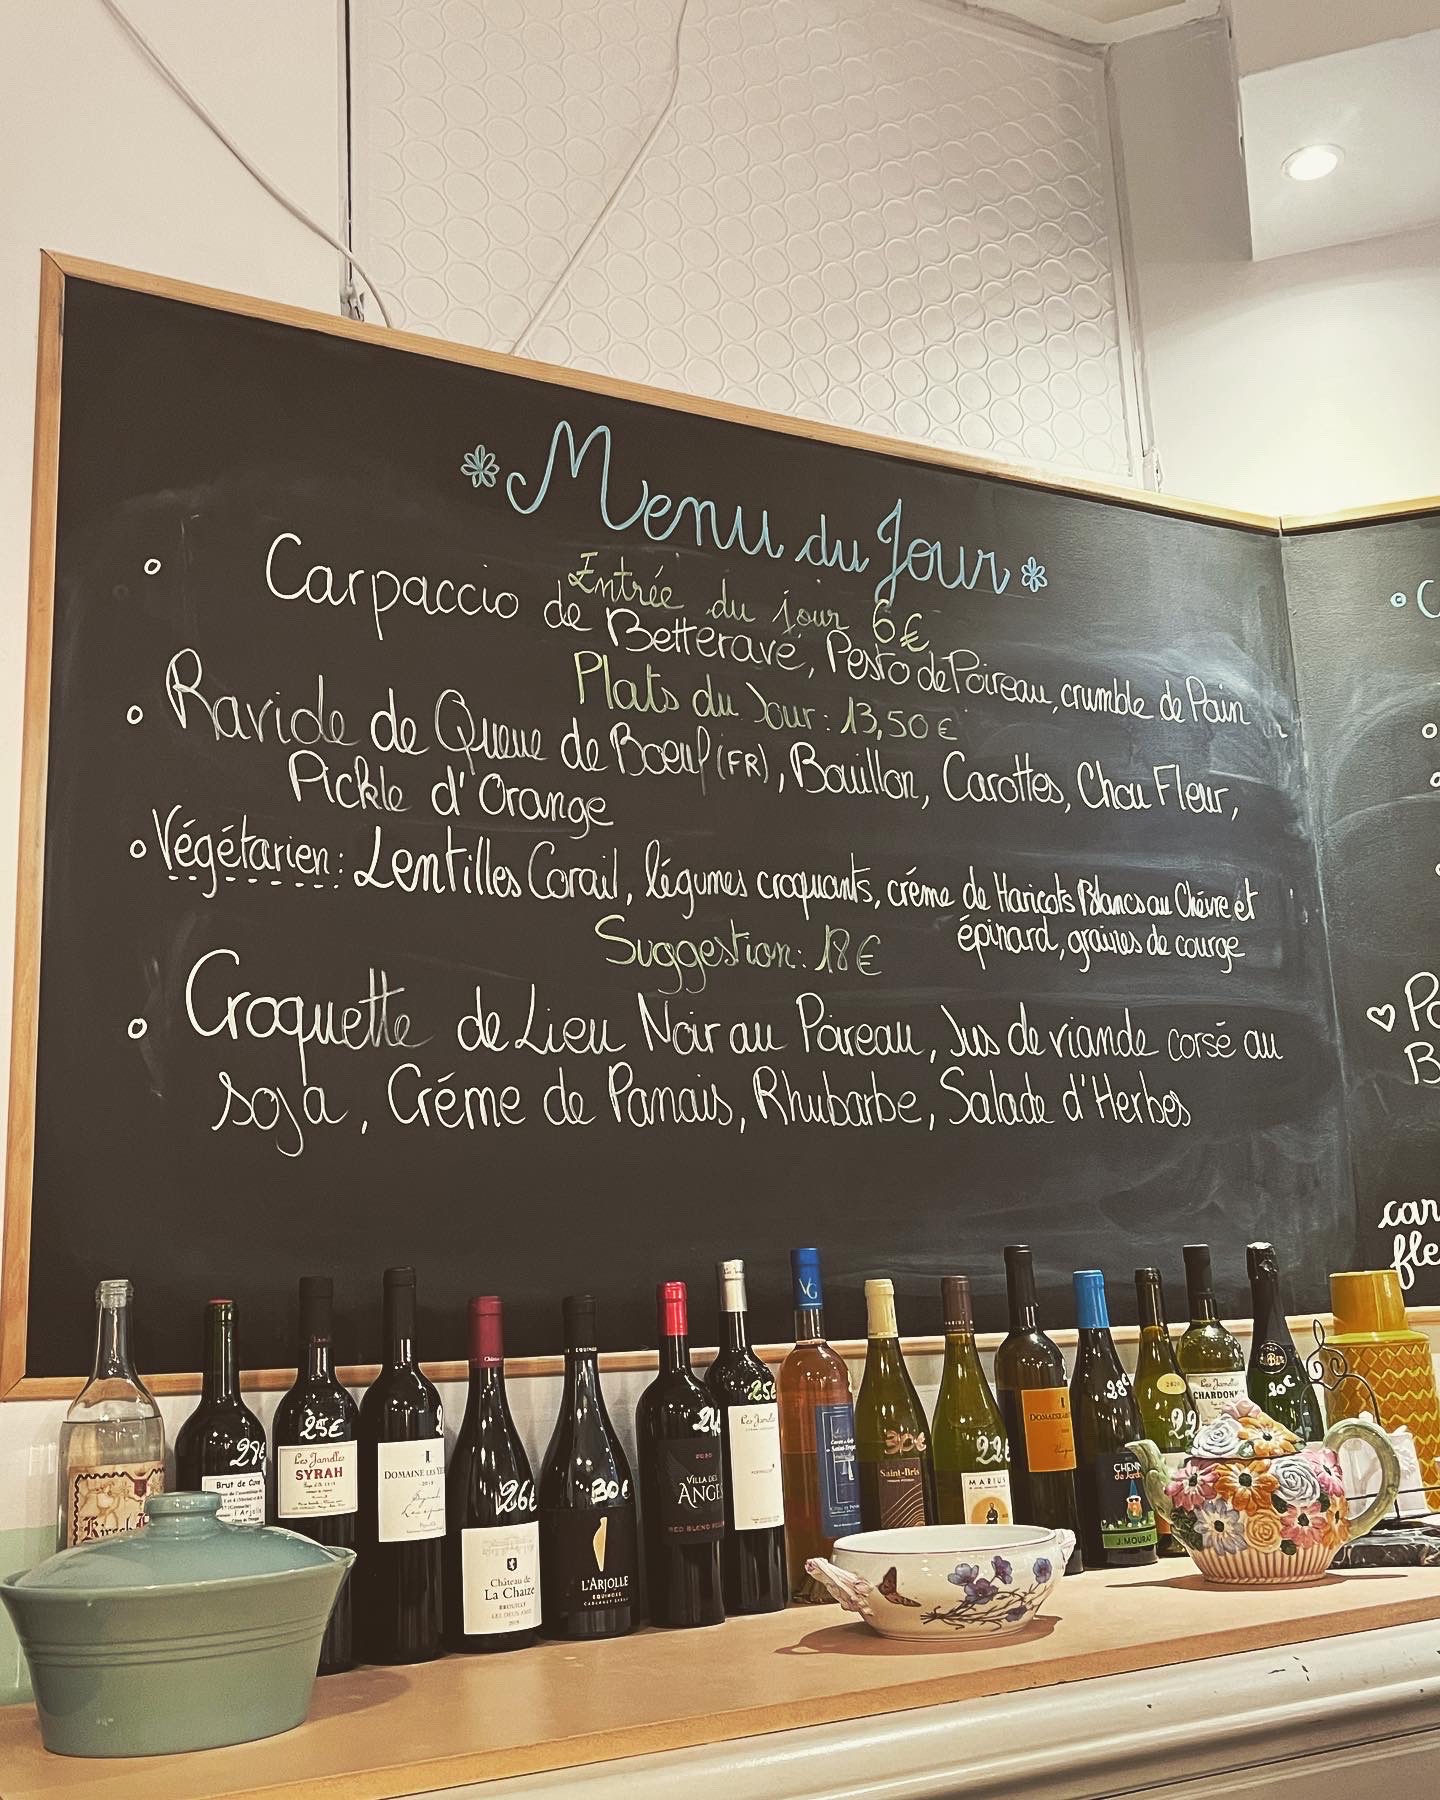 Menu du Jour
Entrée du jour 6€
Carpaccio de Betterave, Pesto de Poireau, crumble de Pain
Plats du Jour: 13,50€
Raviole de Queue de Boeuf (FR), Bouillon, Carottes, Chou Fleur,
Pickle d'Orange
Végétarien: Lentilles Corail, légumes croquants, crème de Haricots Blancs au Chèvre et
épinard, graines de courge
Suggestion: 18€
Croquette de Lieu Noir au Poireau, Jus de viande corsé au
soja, Crème de Panais, Rhubarbe, Salade d'Herbes
car
fle
VG
28€
Brut de Cuve
25€
Les Jamelles
SYRAH
DOMAINE LES
26€
Château de
La Chaize
BROUILLY
2019
30€
L'ARJOLLE
EQUINOXE
2020
VILLA DES
ANGES
RED BLEND
25€
Les Jamelles
30€
Saint-Bris
22€
MARIUS
DOMAINE
28€
CHENIN
de Jardin
J. MOURAT
22
Les Jamelles
CHARDONNAY
20€